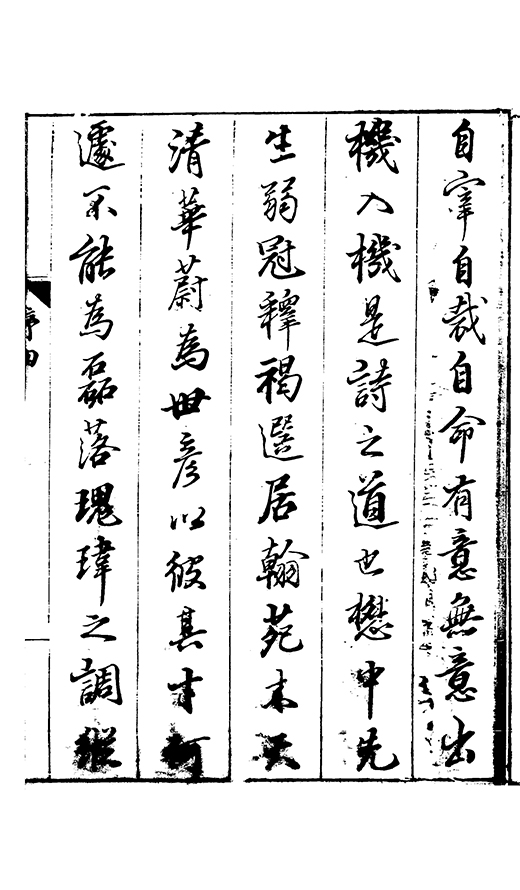 自宰自裁自命有意無意出
機入機是詩之道也懋中先
生弱冠釋褐選居翰苑木天
清華蔚為世彥以彼其才何
遽不能為磊落瑰瑋之調縱
序四